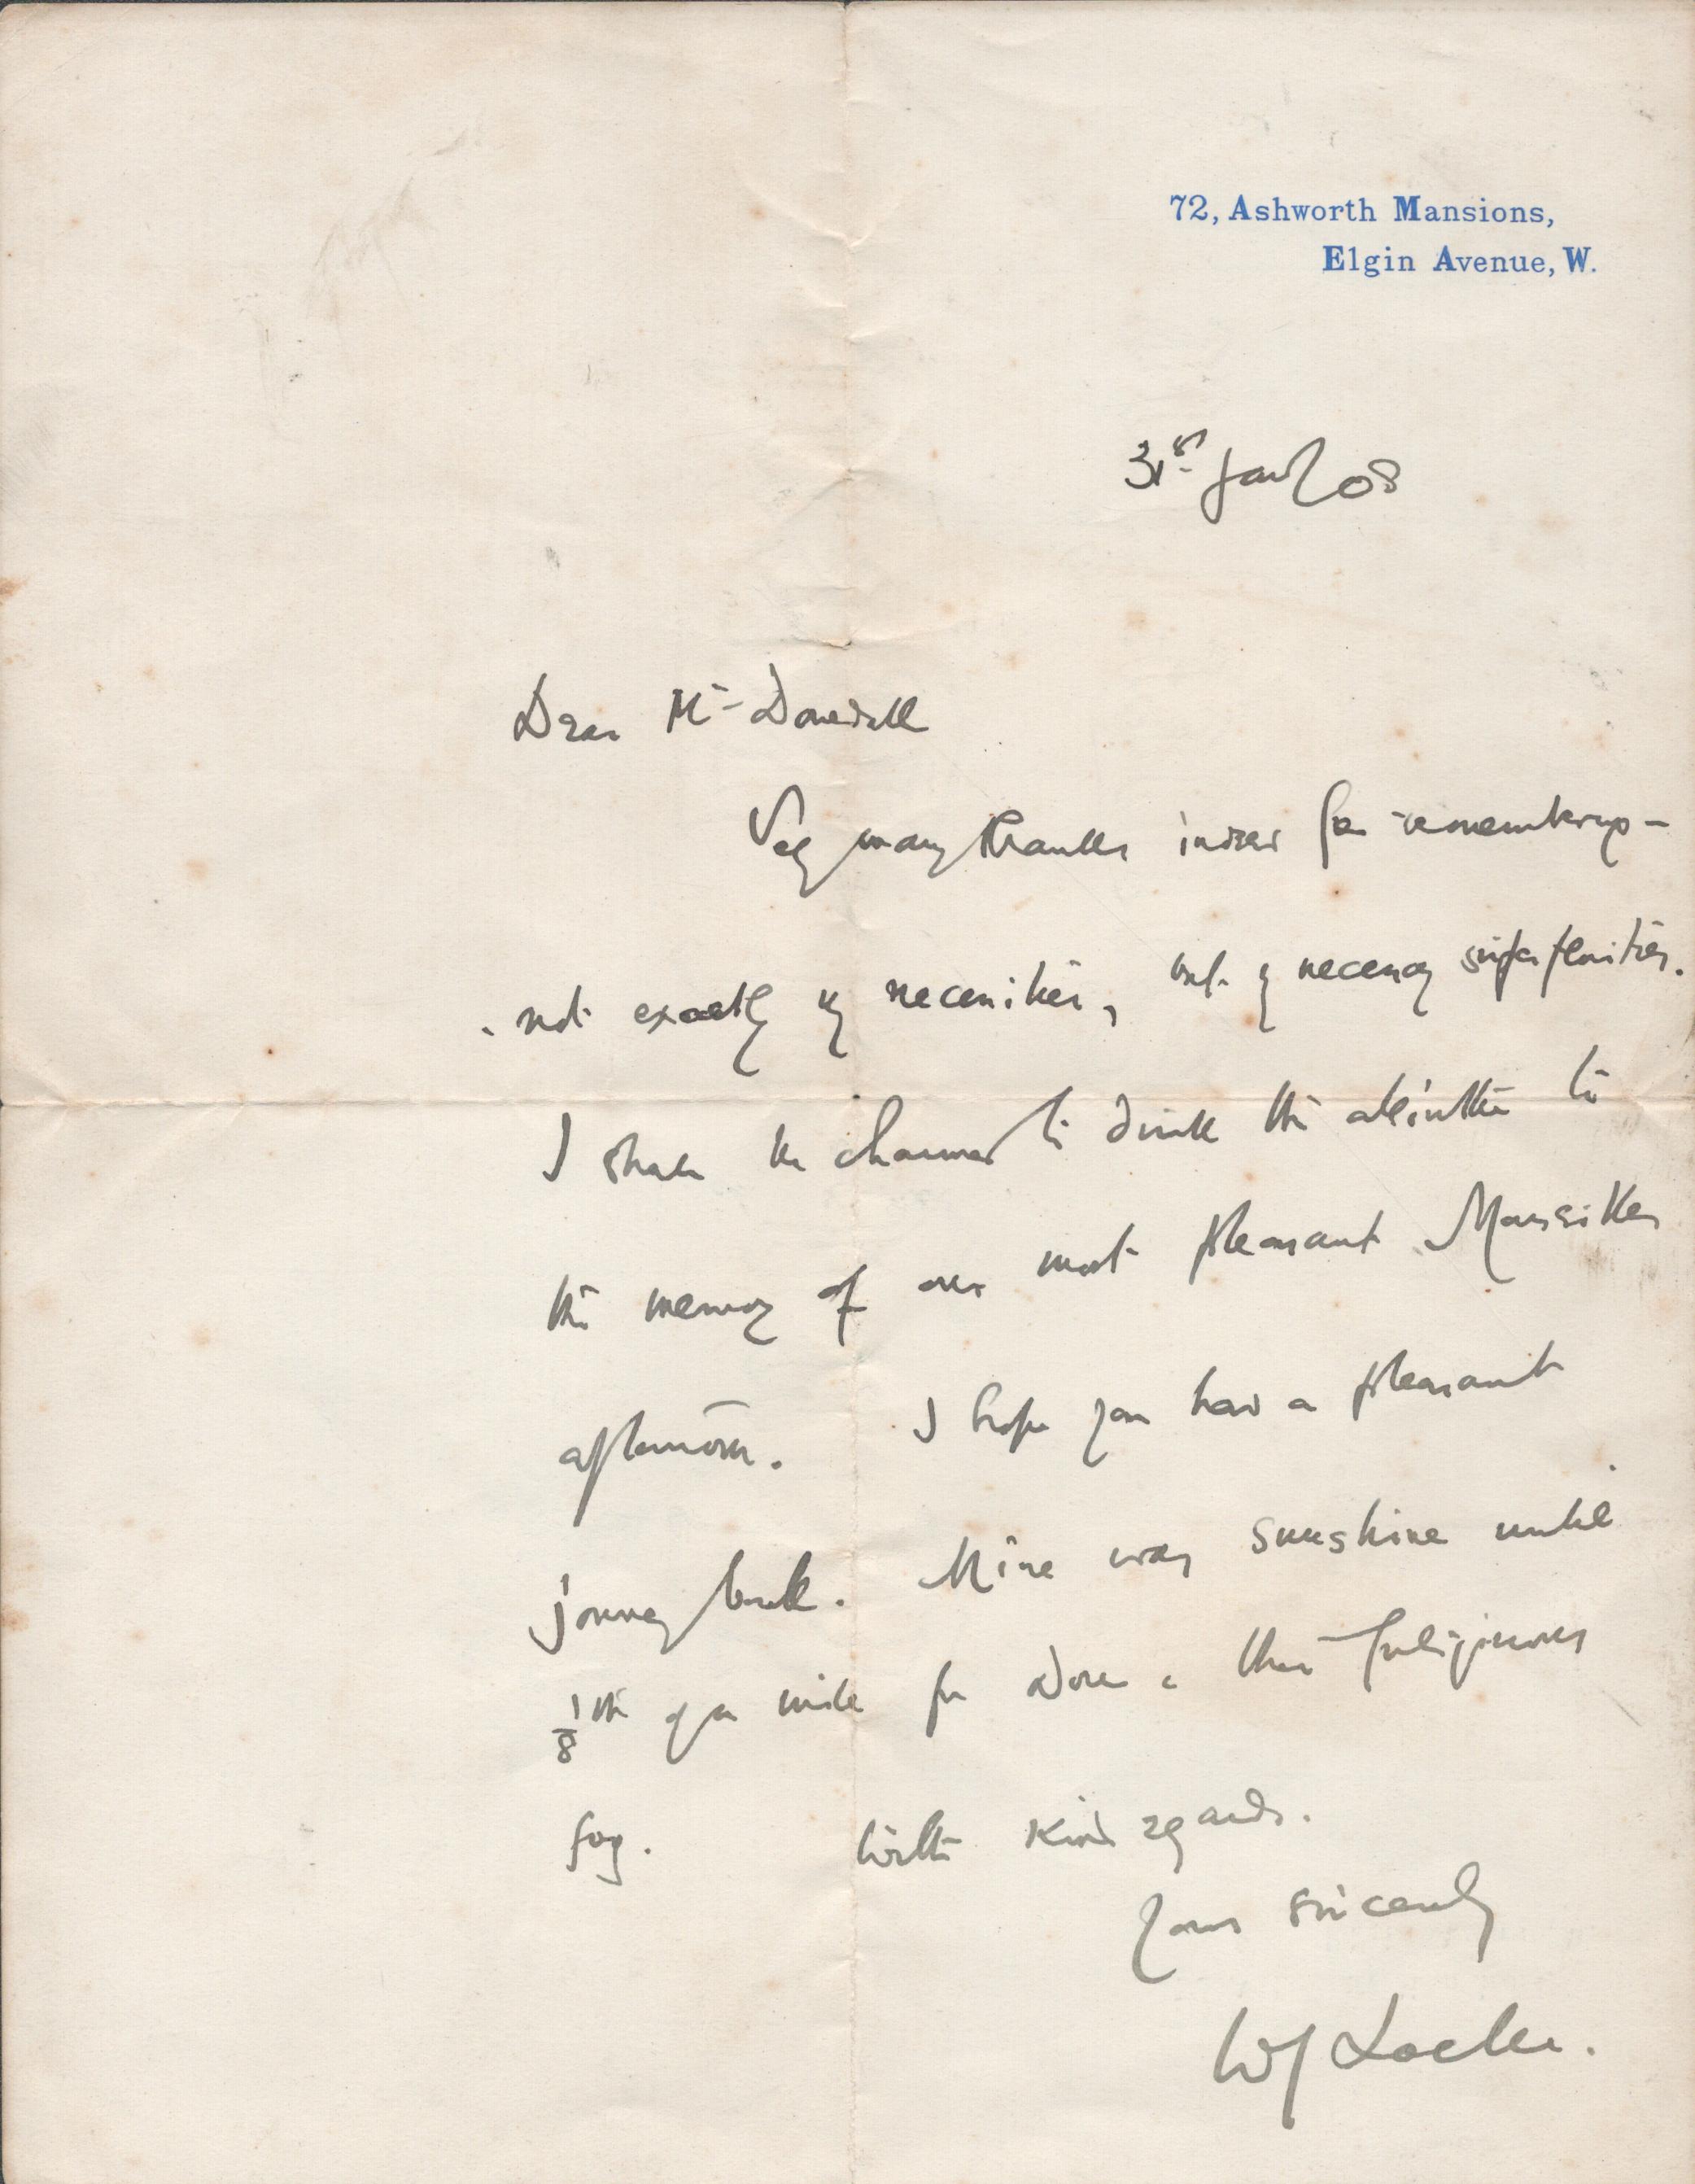 72, Ashworth Mansions,
Elgin Avenue, W.
31st Jany 08
Dear Mr
Very many thanks indeed for remembering -
- not exactly my necessities, but my necessary superfluities.
I shall be charmed to drink the absinthe to
the memory of our most pleasant Marseilles
afternoon. I hope you had a pleasant
journey back. Mine was sunshine until
1/8th of a mile fr Dover & then fuliginous
fog. With kind regards.
Yours sincerely
WJ Locke.